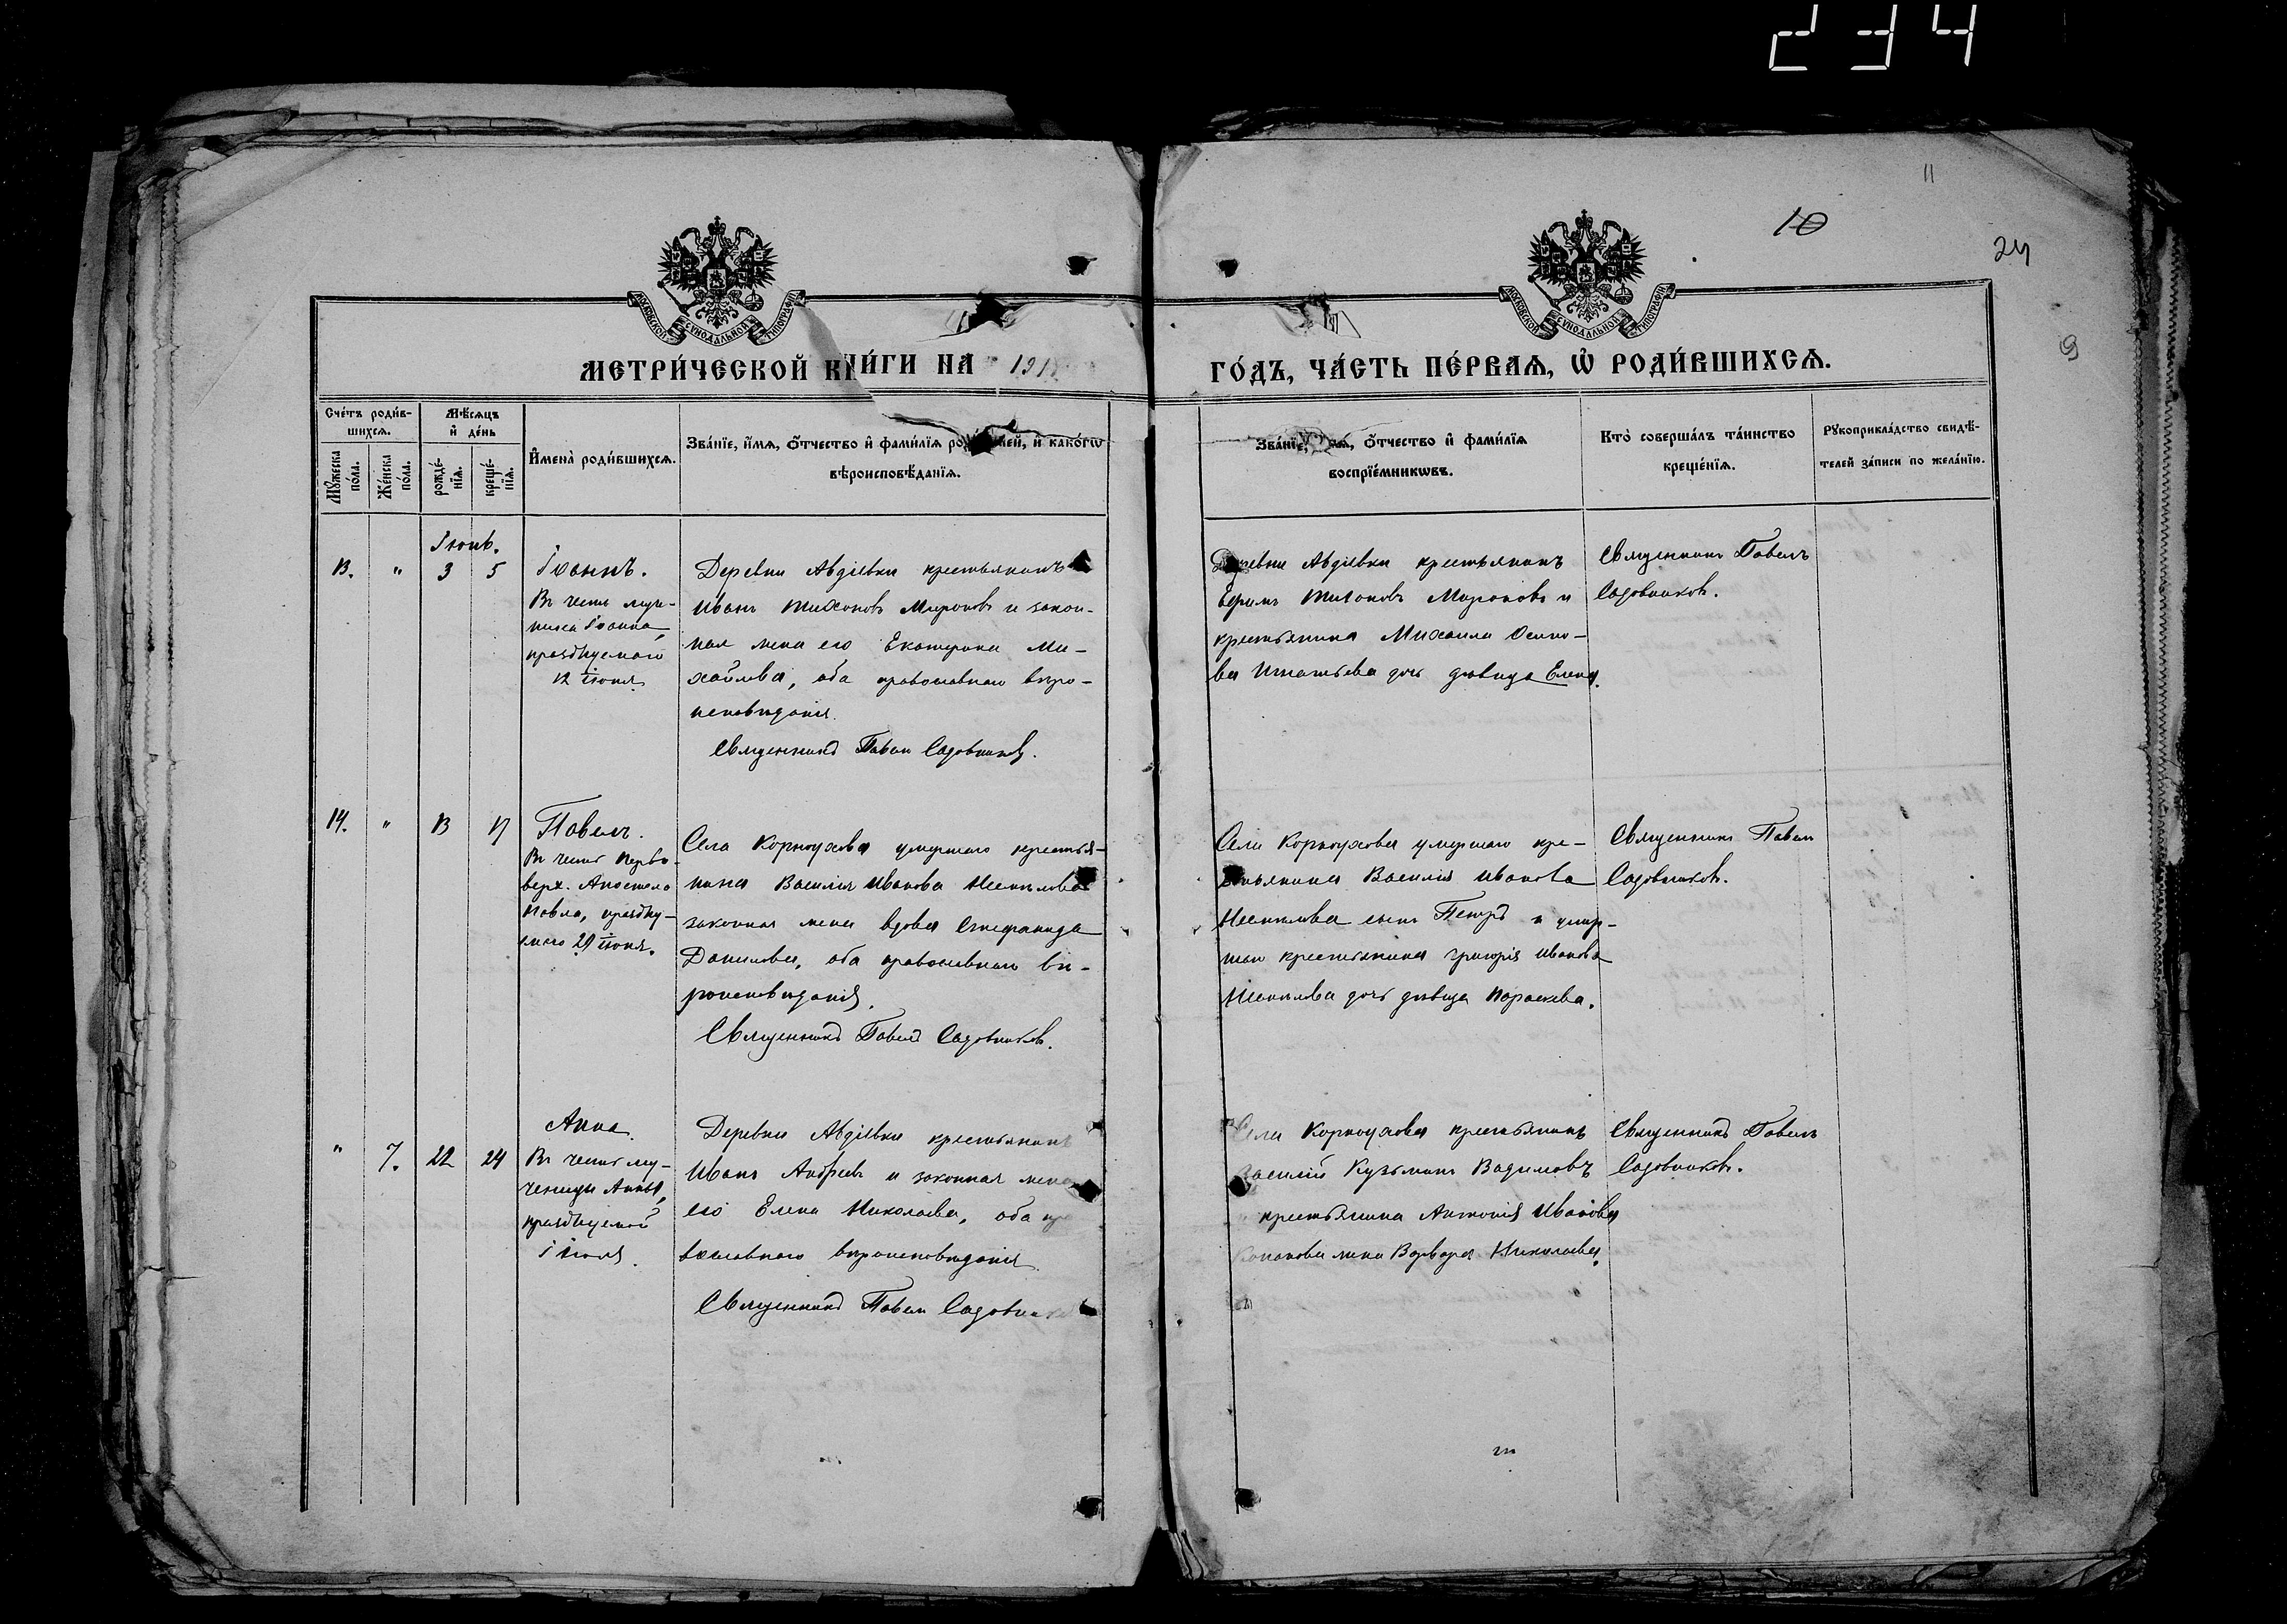 234
11
10
24
9
МОСКОВСКОЙ СѴНОДАЛЬНОЙ ТИПОГРАФІИ
МОСКОВСКОЙ СѴНОДАЛЬНОЙ ТИПОГРАФІИ
МЕТРИ́ЧЕСКОЙ КНИ́ГИ НА 191
ГО́ДЪ, ЧА́СТЬ ПЕ́РВАѦ, Ѡ҆ РОДИ́ВШИХСѦ.
Сче́тъ роди́в-
шихсѧ.
Мѣ́сѧцъ
и҆ де́нь
Мꙋ́жеска
по́ла.
Же́нска
по́ла.
рожде́-
нїѧ.
креще́-
нїѧ.
И҆мена̀ роди́вшихсѧ.
Зва́нїе, и҆́мѧ, ѻ҆́тчество и҆ фами́лїѧ роди́телей, и҆ како́гѡ
вѣроисповѣ́данїѧ.
Зва́нїе, и҆́мѧ, ѻ҆́тчество и҆ фами́лїѧ
воспрїе́мникѡвъ.
Кто̀ соверша́лъ та́инство
креще́нїѧ.
Рꙋкоприкла́дство свидѣ́-
телей за́писи по жела́нїю.
Іюнь.
13. " 3 5
Іоаннъ.
Въ честь муч-
ника Іоанна,
празднуемаго
12 іюня.
Деревни Авдіевки крестьянинъ
Иванъ Тихоновъ Мироновъ и закон-
ная жена его Екатерина Ми-
хайлова, оба православнаго вѣро-
исповѣданія.
Священникъ Павелъ Садовниковъ.
Деревни Авдіевки крестьянинъ
Ефимъ Тихоновъ Мироновъ и
крестьянина Михаила Осипо-
ва Игнатьева дочь дѣвица Елена.
Священникъ Павелъ
Садовниковъ.
14. " 13 17
Павелъ.
Въ честь Перво-
верх. Апостола
Павла, праздну-
емаго 29 іюня.
Села Корноухова умершаго крестья-
нина Василія Иванова
законная жена вдова Стефанида
Данилова, оба православнаго вѣ-
роисповѣданія.
Священникъ Павелъ Садовниковъ.
Села Корноухова умершаго кре-
стьянина Василія Иванова
сынъ Петръ и умер-
шаго крестьянина Григорія Иванова
дочь дѣвица Параскева.
Священникъ Павелъ
Садовниковъ.
" 7. 22 24
Анна.
Въ честь му-
ченицы Анны,
празднуемой
5 іюля.
Деревни Авдіевки крестьянинъ
Иванъ Андреевъ и законная жена
его Елена Николаева, оба пра
вославнаго вѣроисповѣданія.
Священникъ Павелъ Садовников
Села Корноухова крестьянинъ
Василій Кузьминъ Вадимовъ
крестьянина Антонія Иванова
жена Варвара Николаева.
Священникъ Павелъ
Садовниковъ.